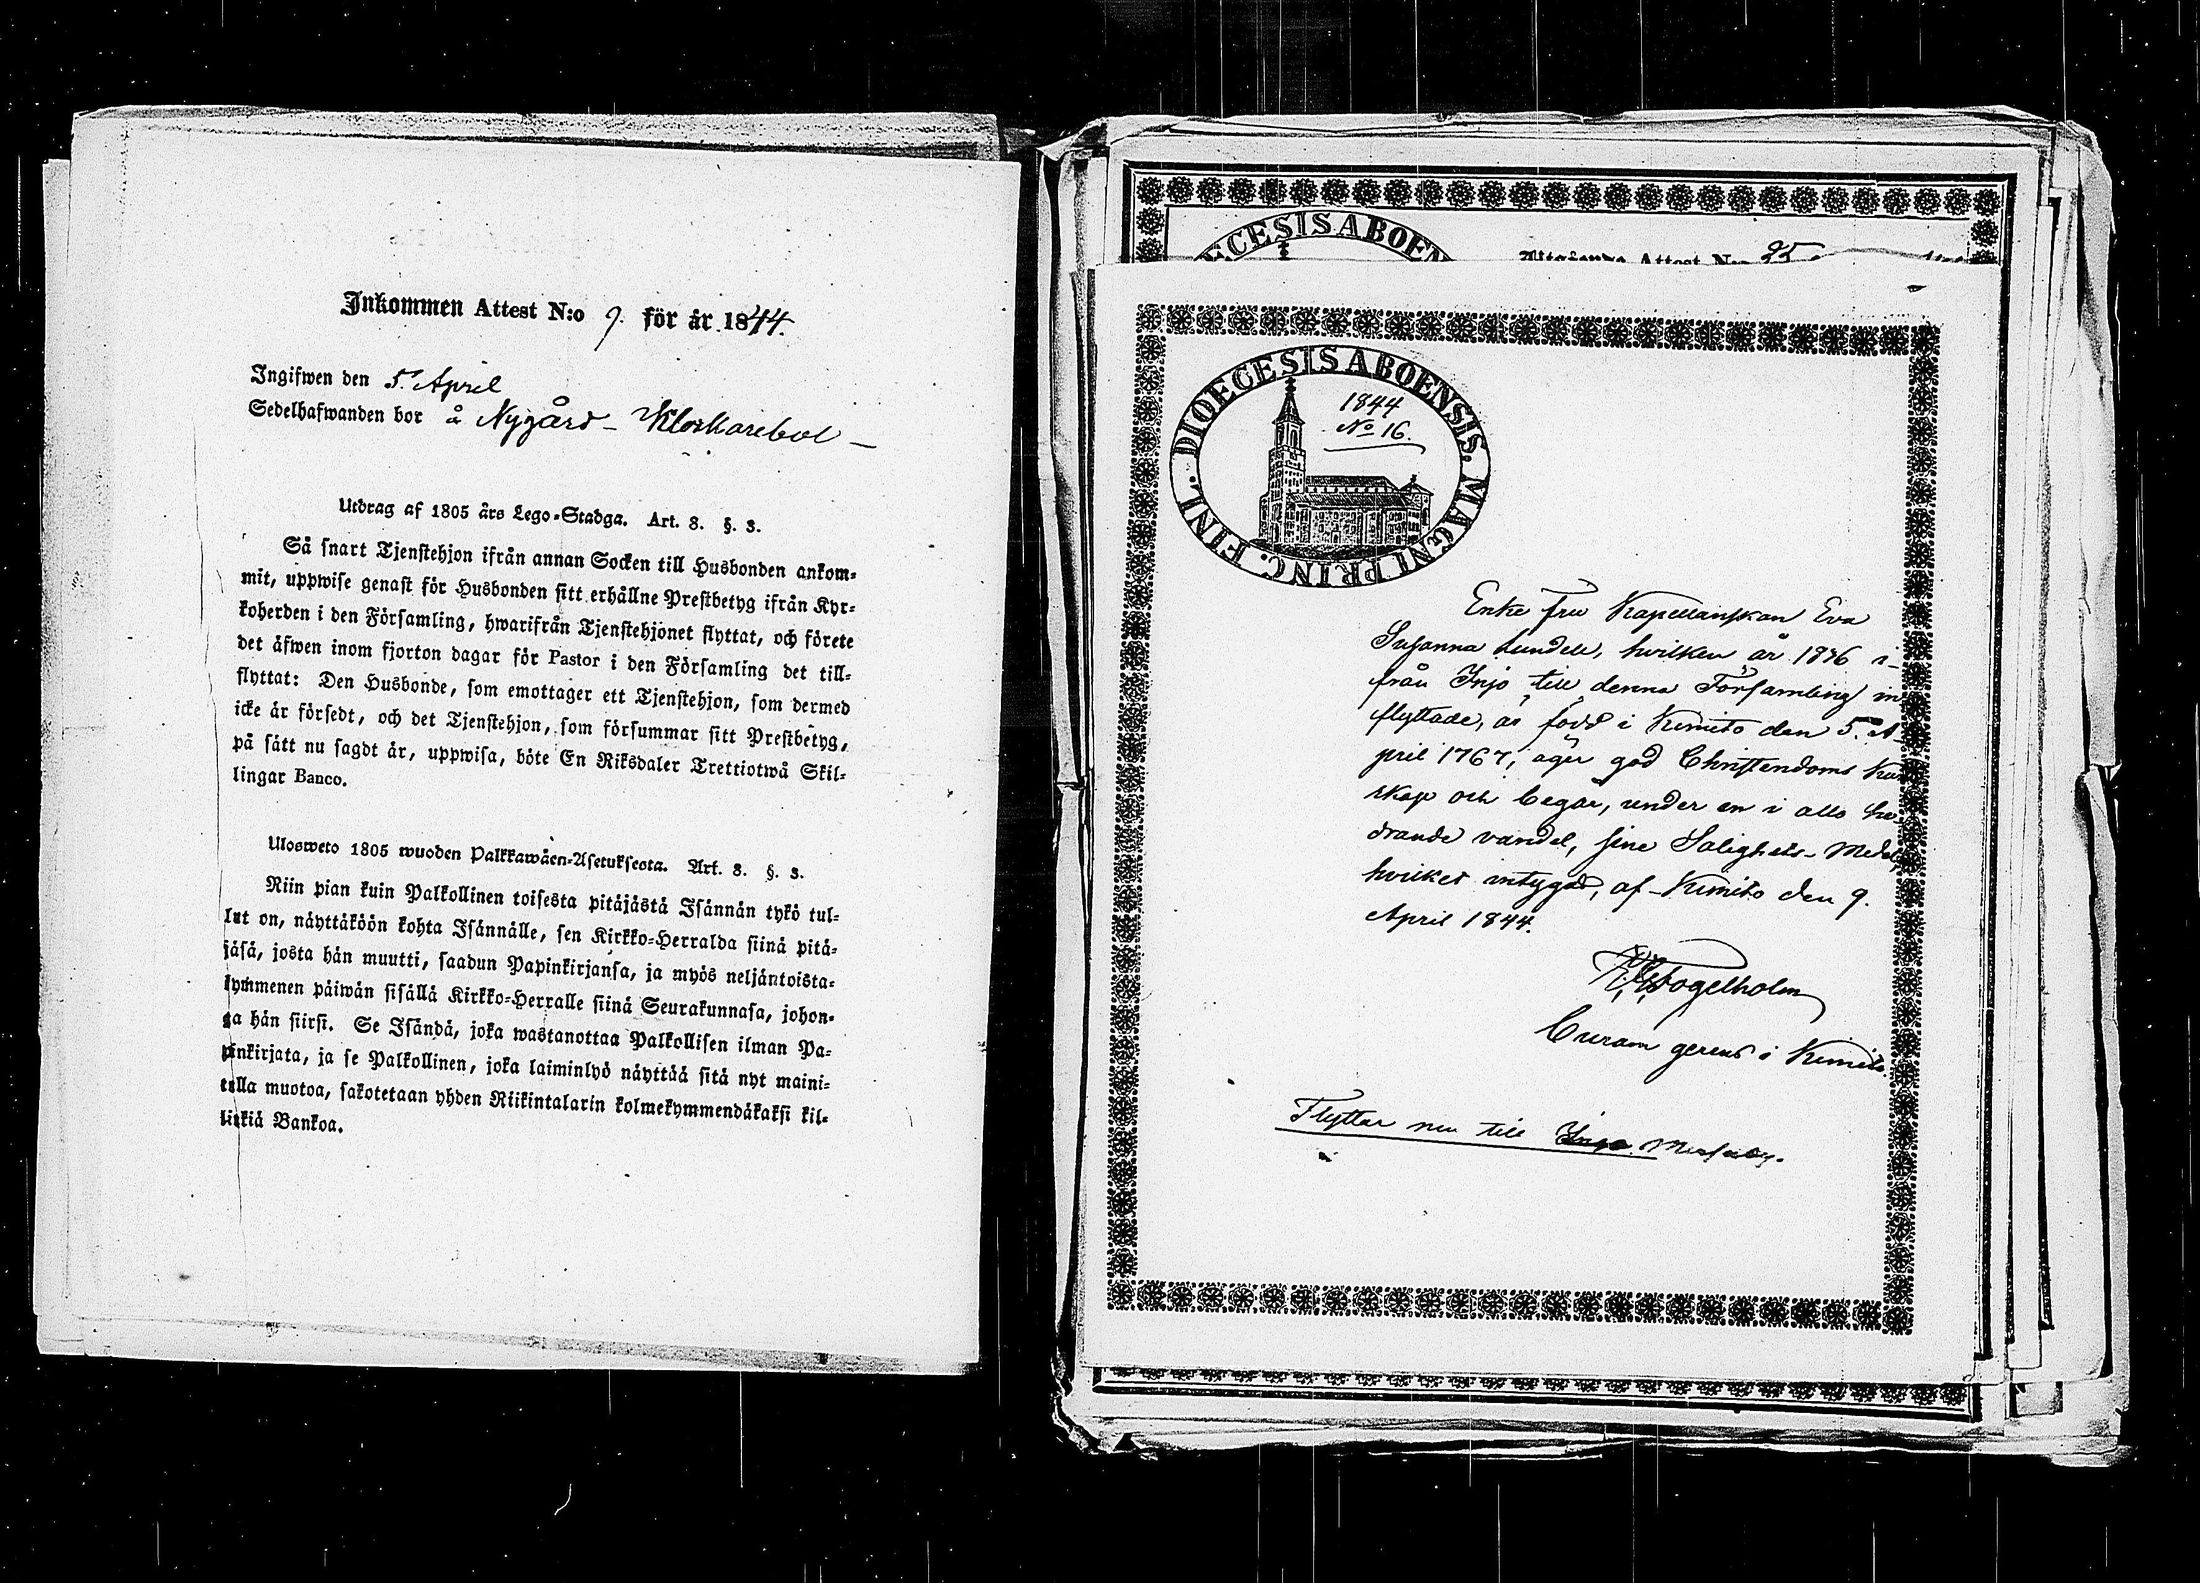 Inkommen Attest N:o 9. för år 1844.
Ingifwen den 5. April
Sedelhafwanden bor å Nygård - Klockarebol -
Utdrag af 1805 års Lego-Stadga. Art. 8. §. 3.
Så snart Tjenstehjon ifrån annan Socken till Husbonden ankom-
mit, uppwise genast för Husbonden sitt erhållne Prestbetyg ifrån Kyr-
koherden i den Församling, hwarifrån Tjenstehjonet flyttat, och förete
det äfwen inom fjorton dagar för Pastor i den Församling det till-
flyttat: Den Husbonde, som emottager ett Tjenstehjon, som dermed
icke är försedt, och det Tjenstehjon, som försummar sitt Prestbetyg,
på sätt nu sagdt är, uppwisa, böte En Riksdaler Trettiotwå Skil-
lingar Banco.
Ulosweto 1805 wuoden Palkkawäen-Asetuksesta. Art. 8. §. 3.
Niin pian kuin Palkollinen toisesta pitäjästä Isännän tykö tul-
lut on, näyttäköön kohta Isännälle, sen Kirkko-Herralda siinä pitä-
jäsä, josta hän muutti, saadun Papinkirjansa, ja myös neljäntoista-
kymmenen päiwän sisällä Kirkko-Herralle siinä Seurakunnasa, johon-
ga hän siirsi. Se Isändä, joka wastanottaa Palkollisen ilman Pa-
pinkirjata, ja se Palkollinen, joka laiminlyö näyttää sitä nyt maini-
tulla muotoa, sakotetaan yhden Riikintalarin kolmekymmendäkaksi kil-
linkiä Bankoa.
ECESIS ABOEN
Utgående Attest N:o 25
DIOECESIS ABOENSIS. MAGNI PRINC. FINL.
1844
No 16.
Enke fru Kapellanskan Eva
Susanna Lundell, hvilken år 1836 i-
från Ingo till denna Församling in
flyttade, är född i Kimito den 5. A-
pril 1767, äger god Christendoms Kun
skap och begår, under en i allo he-
drande vandel, sine Salighets-Medel,
hvilket intygas, af Kimito den 9.
April 1844.
Fogelholm
Curam gerens i Kimito.
Flyttar nu till Ingo